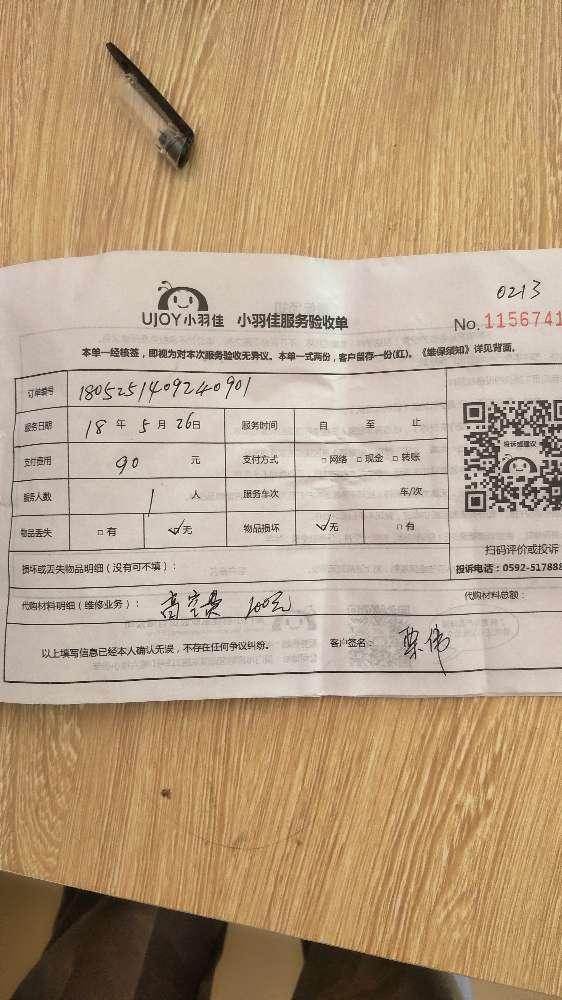 0213
UJOY小羽佳 小羽佳服务验收单 No. 1156741
本单一经核签，即视为对本次服务验收无异议。本单一式两份，客户留存一份(红)。《维保须知》详见背面。
订单编号 1805251409240901
服务日期 18 年 5 月 26 日 服务时间 自 至 止
支付费用 90 元 支付方式 □ 网络 □ 现金 □ 转账
服务人数 1 人 服务车次 车/次
物品丢失 □ 有 ✓无 物品损坏 ✓无 □ 有
投诉或建议
扫码评价或投诉
投诉电话：0592-517888
损坏或丢失物品明细（没有可不填）：
代购材料明细（维修业务）： 高空费 100元 代购材料总额：
以上填写信息已经本人确认无误，不存在任何争议纠纷。 客户签名：